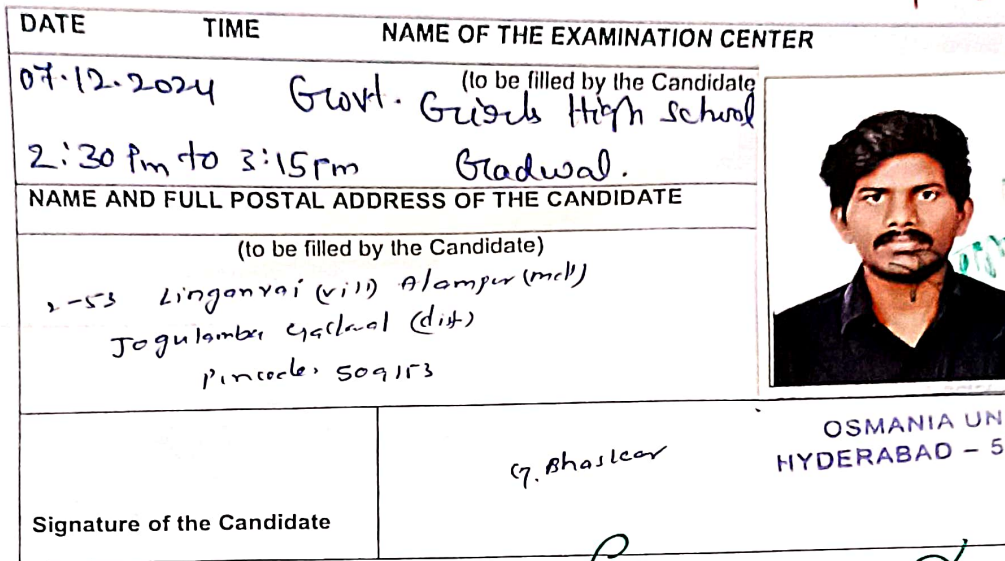 DATE TIME NAME OF THE EXAMINATION CENTER
(to be filled by the Candidate
07.12.2024 Govt. Grirls High School
2:30 Pm to 3:15 pm Gadwal.
NAME AND FULL POSTAL ADDRESS OF THE CANDIDATE
(to be filled by the Candidate)
2-53 Linganvai (vill) Alampur (mdl)
Jogulamba Gadwal (dist)
Pincode. 509153
OSMANIA UN
HYDERABAD – 5
G. Bhaskar
Signature of the Candidate